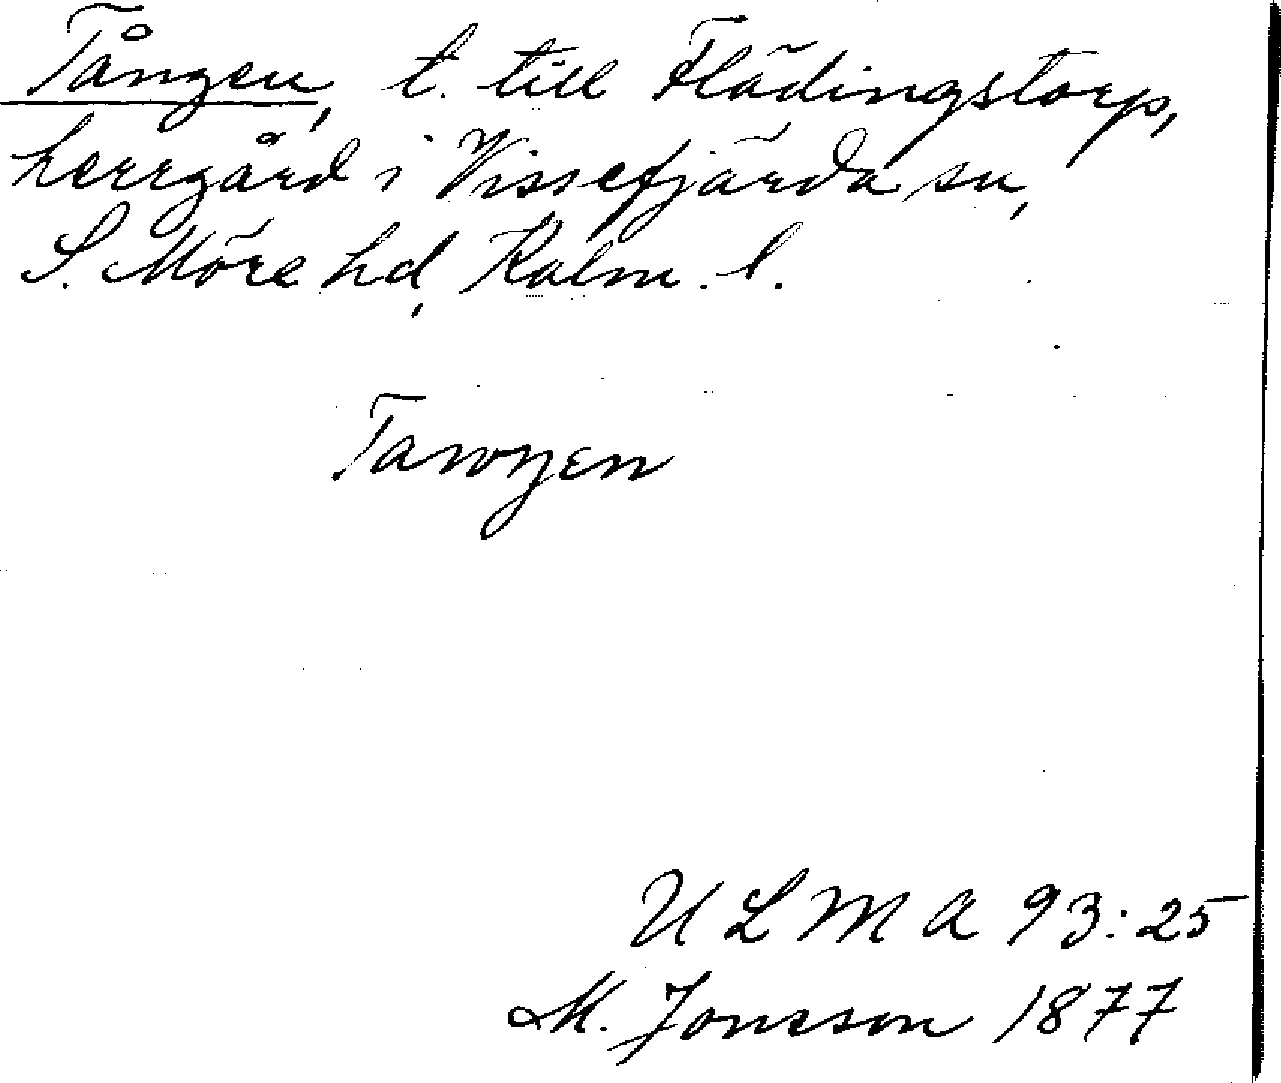 Tången, t. till Flädingstorp,
herrgård i Vissefjärda sn,
S. Möre hd, Kalm. l.
ULMA 93:25
M. Jonsson 1877